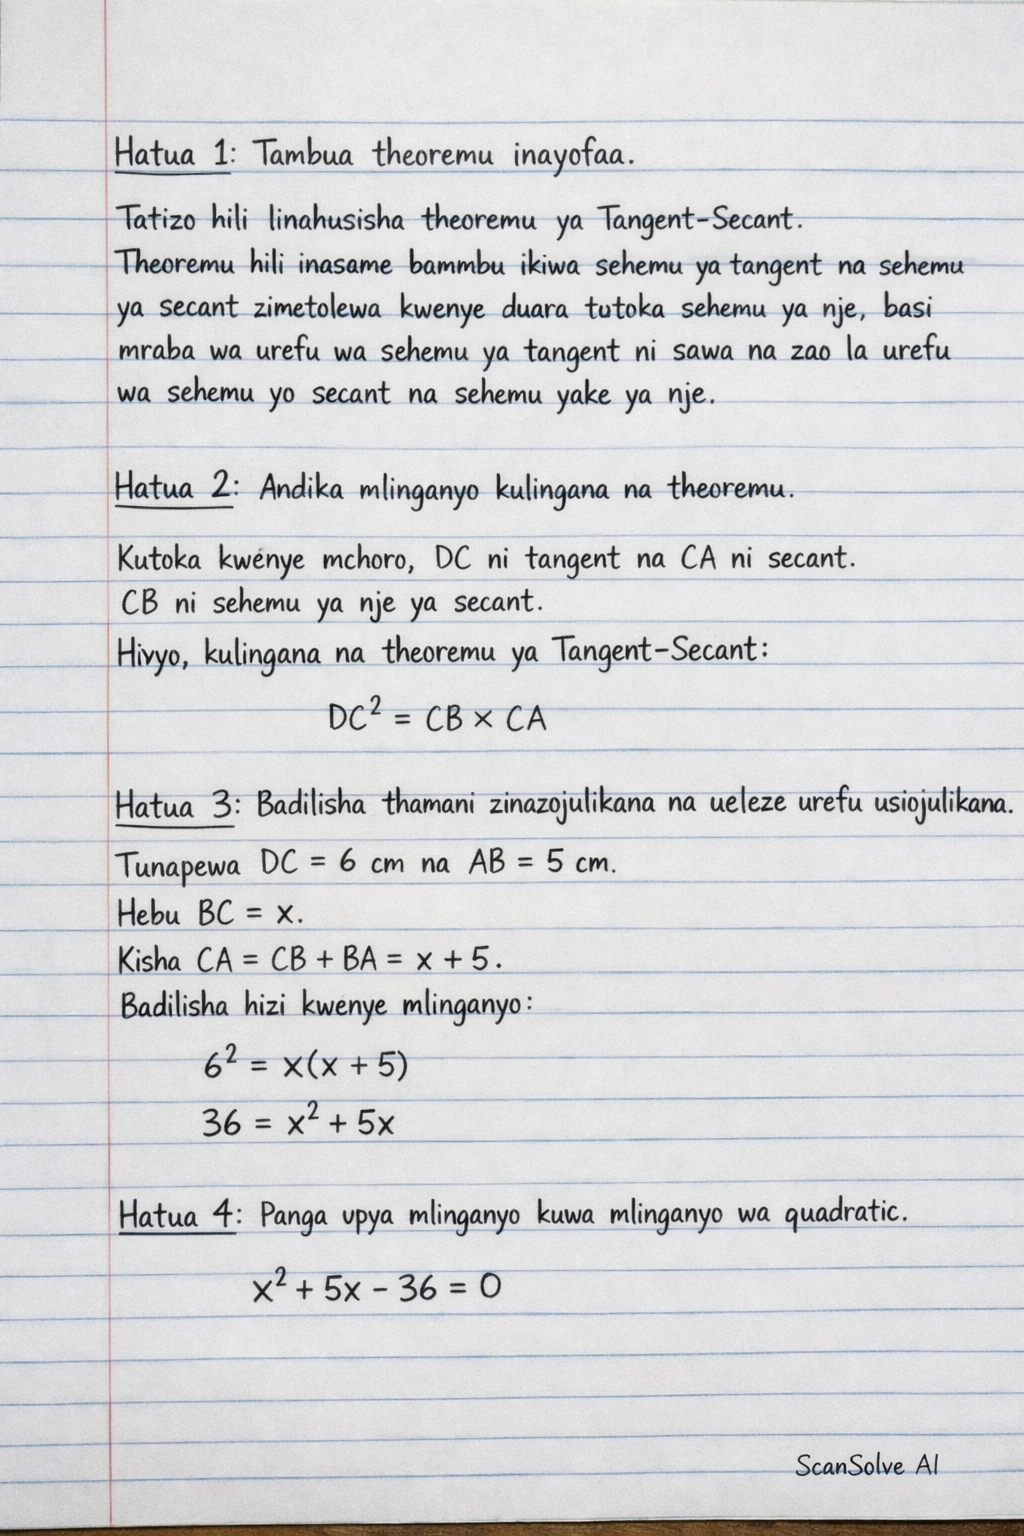 Hatua 1: Tambua theoremu inayofaa.
Tatizo hili linahusisha theoremu ya Tangent-Secant.
Theoremu hili inasame bammbu ikiwa sehemu ya tangent na sehemu
ya secant zimetolewa kwenye duara tutoka sehemu ya nje, basi
mraba wa urefu wa sehemu ya tangent ni sawa na zao la urefu
wa sehemu yo secant na sehemu yake ya nje.
Hatua 2: Andika mlinganyo kulingana na theoremu.
Kutoka kwenye mchoro, DC ni tangent na CA ni secant.
CB ni sehemu ya nje ya secant.
Hivyo, kulingana na theoremu ya Tangent-Secant:
DC² = CB × CA
Hatua 3: Badilisha thamani zinazojulikana na ueleze urefu usiojulikana.
Tunapewa DC = 6 cm na AB = 5 cm.
Hebu BC = x.
Kisha CA = CB + BA = x + 5.
Badilisha hizi kwenye mlinganyo:
6² = x(x + 5)
36 = x² + 5x
Hatua 4: Panga upya mlinganyo kuwa mlinganyo wa quadratic.
x² + 5x - 36 = 0
ScanSolve AI